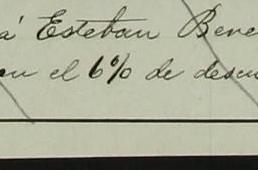 á Esteban Bene
en el 6% de descu